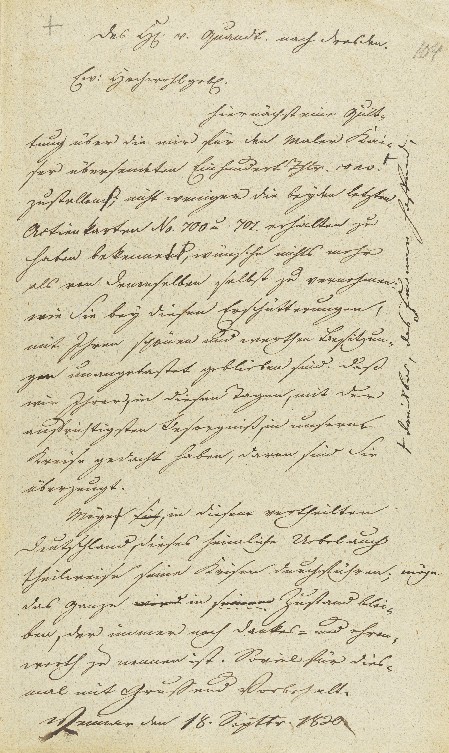 104
Des H. v. Quandt nach Dresden.
Ew: Hochwohlgeb.
Hiernächst eine Quit-
tung über die mir für den Maler Kai-
ser übersendeten Einhundert Thlr.
zustellend, nicht weniger die beyden letzten
Actienkarten No. 700 u. 701. erhalten zu
haben bekennend, wünsche nichts mehr
als von Denenselben selbst zu vernehmen
wie Sie bey diesen Erschütterungen,
mit Ihren schönen und werthen Besitzun-
gen unangetastet geblieben sind. Daß
wir Ihrer, in diesen Tagen, mit der
aufrichtigsten Besorgniß, in unserm
Kreise gedacht haben, davon sind Sie
überzeugt.
Möge in diesem vertheilten
Deutschland, dieses heimliche Uebel auch
theilweise seine Krisen durchführen, möge
das Ganze wird in seinem Zustand blei-
ben, der immer noch dankes- und ehren-
werth zu nennen ist. Soviel für dies-
mal mit Gruß und Vorbehalt.
Weimar den 18. Septbr. 1830.